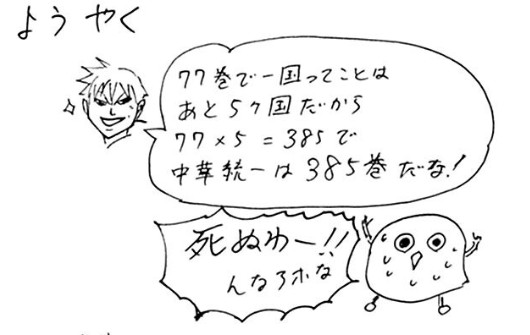 ようやく
77巻で一国ってことは
あと5ヶ国だから
77×5=385で
中華統一は385巻だな!
死ぬわー!!
んなアホな